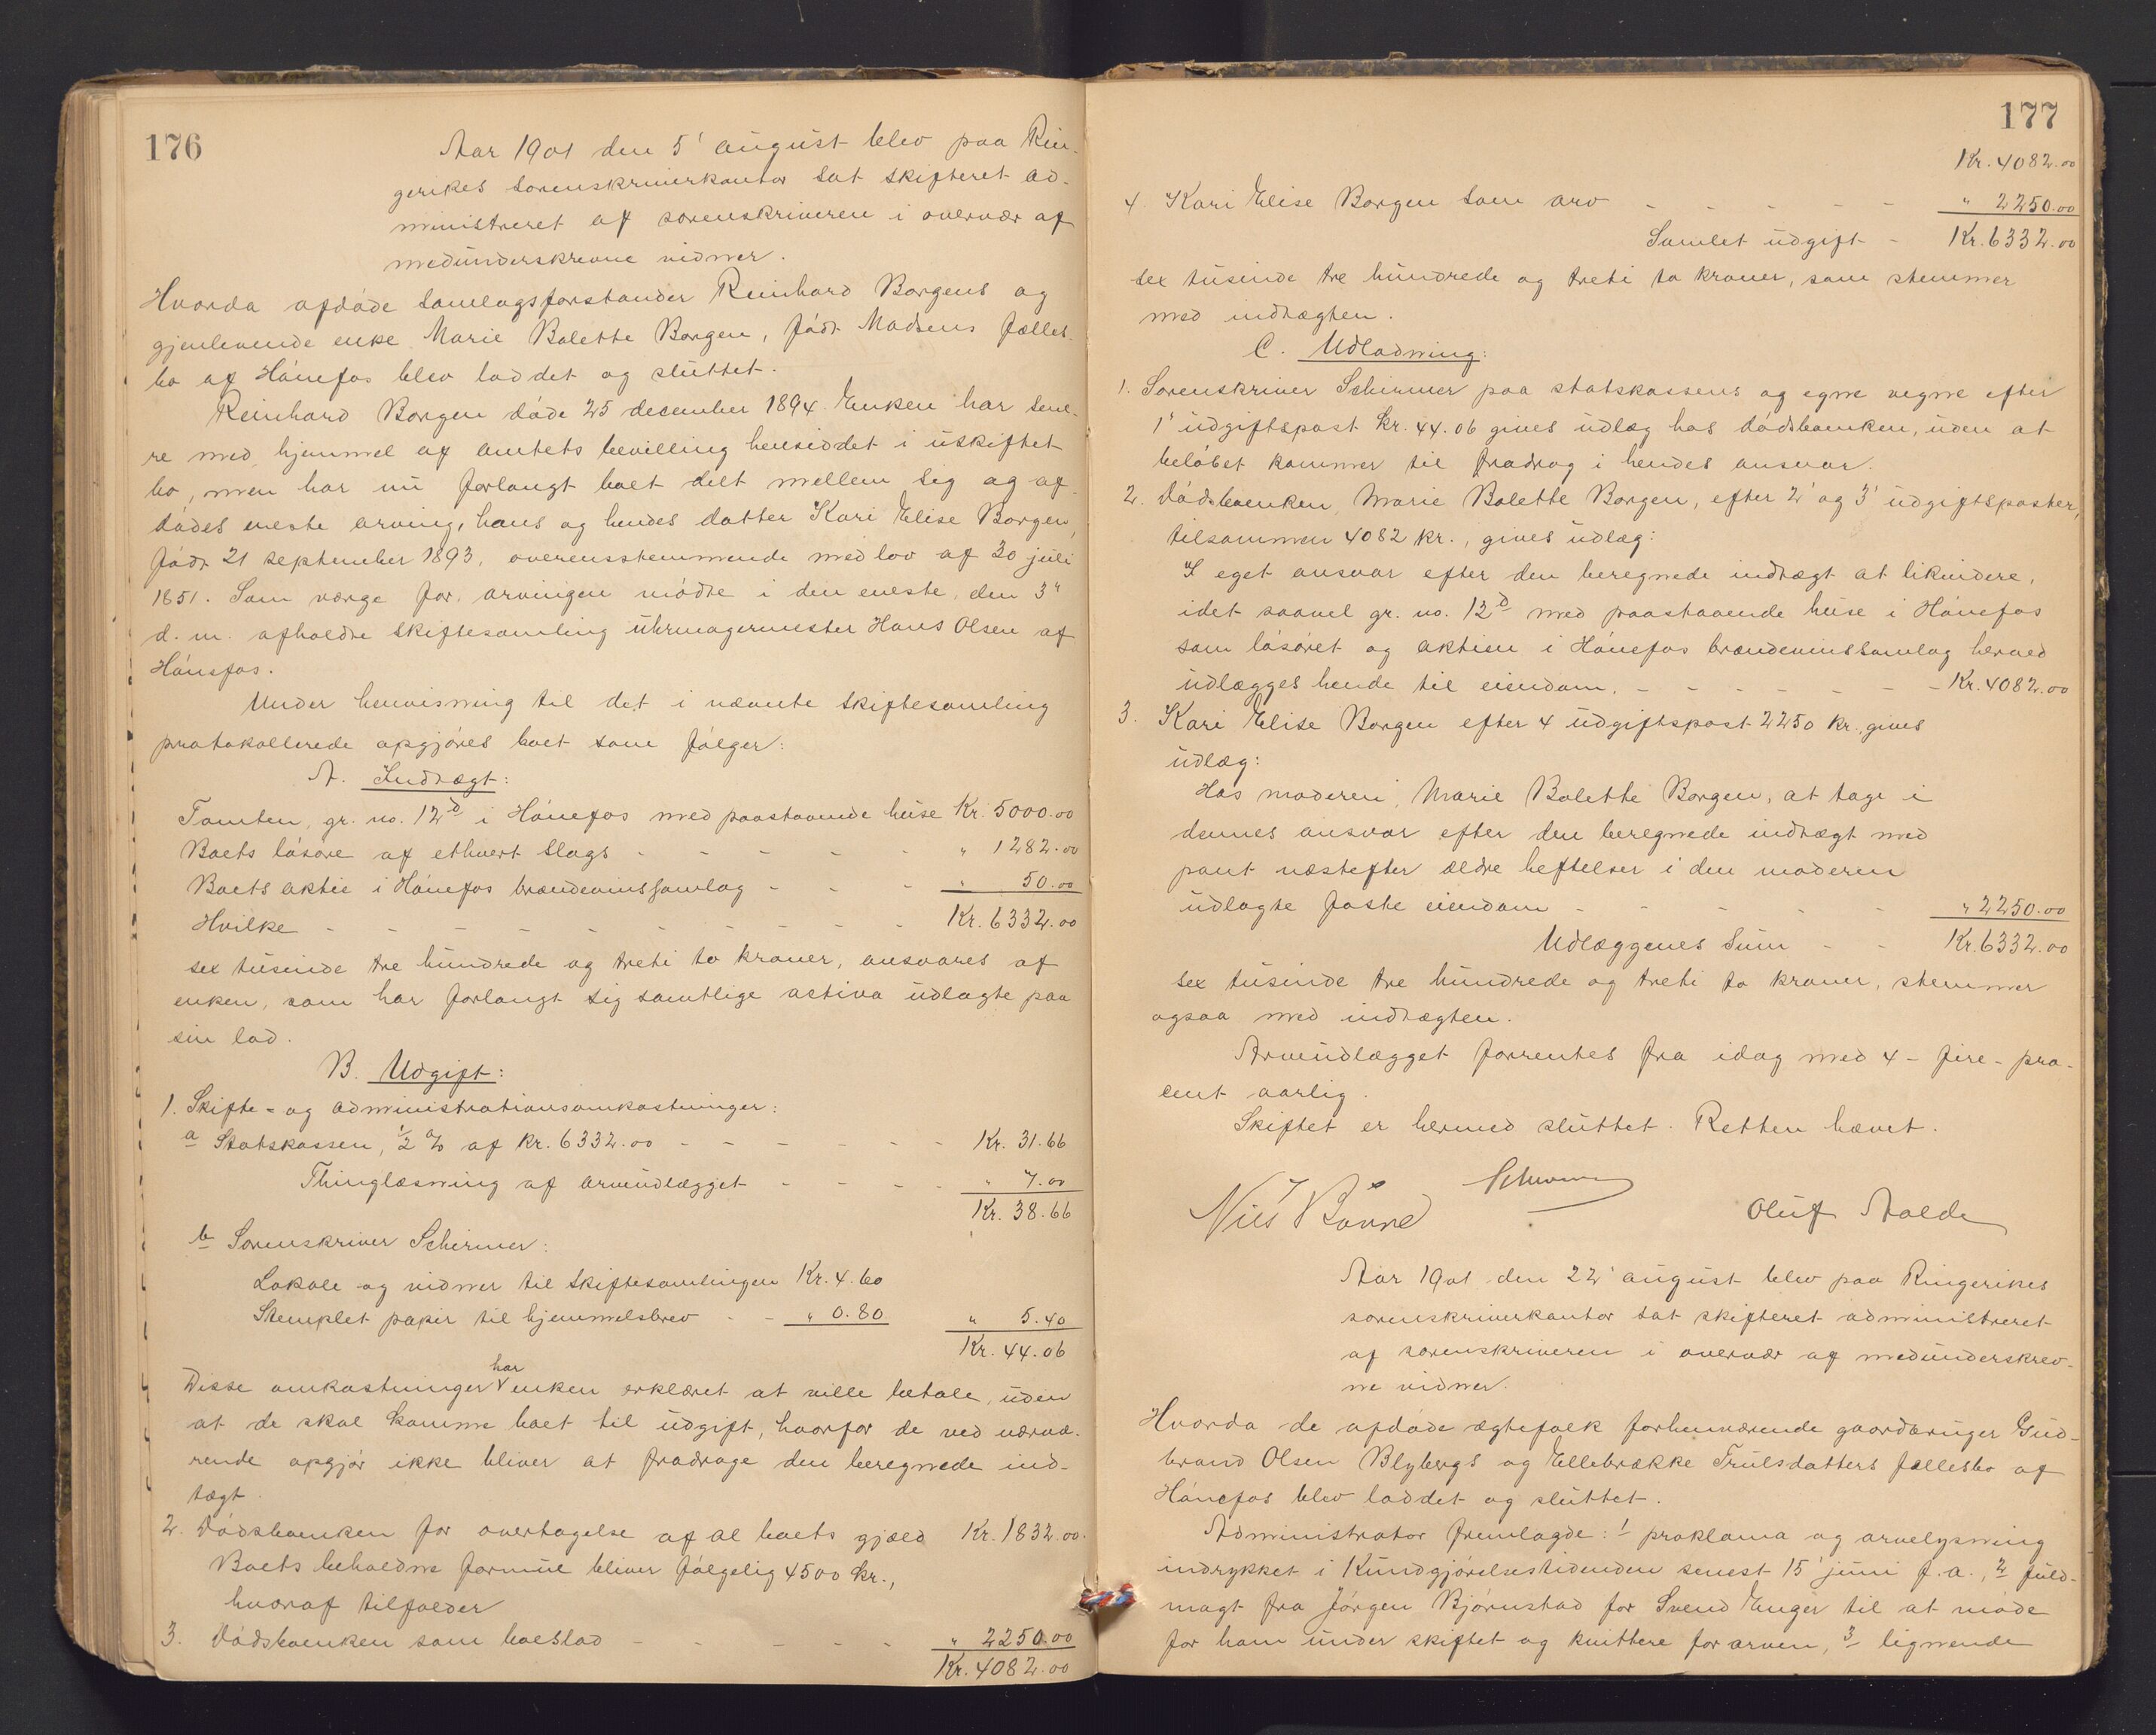 176
Aar 1901 den 5' august blev paa Rin-
gerikes sorenskriverkontor sat skifteret ad-
ministreret af sorenskriveren i overvær af
medunderskrevne vidner.
Hvorda afdøde samlagsforstander Reinhard Borgens og
gjenlevende enke Marie Bolette Borgen, født Madsens fælles-
bo af Hønefos blev loddet og sluttet.
Reinhard Borgen døde 25 december 1894. Enken har sene-
re med hjemmel af amtets bevilling hensiddet i uskiftet
bo, men har nu forlangt boet delt mellem sig og af-
dødes eneste arving, hans og hendes datter Kari Elise Borgen,
født 21 september 1893, overensstemmende med lov af 30 juli
1851. Som værge for arvingen mødte i den eneste, den 3'
d. m. afholdte skiftesamling uhrmagermester Hans Olsen af
Hønefos.
Under henvisning til det i nævnte skiftesamling
protokollerede opgjøres boet som følger:
A. Indtægt:
Tomten, gr. no. 12ᵈ i Hønefos med paastaaende huse Kr. 5000.00
Boets løsøre af ethvert slags - - - - - " 1282.00
Boets aktie i Hønefos brændevinssamlag - - - " 50.00
Hvilke - - - - - - - - - Kr. 6332.00
sex tusinde tre hundrede og treti to kroner, ansvares af
enken, som har forlangt sig samtlige activa udlagte paa
sin lod.
B. Udgift:
1. Skifte- og administrationsomkostninger:
a Statskassen, ½ % af kr. 6332.00 - - - - - - Kr. 31.66
Thinglæsning af arveudlægget - - - - " 7.00
Kr. 38.66
b Sorenskriver Schirmer:
Lokale og vidner til skiftesamlingen Kr. 4.60
Stemplet papir til hjemmelsbrev - - " 0.80 " 5.40
Kr. 44.06
Disse omkostninger har enken erklæret at ville betale, uden
at de skal komme boet til udgift, hvorfor de ved nærvæ-
rende opgjør ikke bliver at fradrage den beregnede ind-
tægt.
2. Dødsboenken for overtagelse af al boets gjæld Kr. 1832.00.
Boets beholdne formue bliver følgelig 4500 kr.,
hvoraf tilfalder
3. Dødsboenken som boeslod - - - - - " 2250.00
Kr. 4082.00
177
Kr. 4082.00
4. Kari Elise Borgen som arv - - - - - " 2250.00
Samlet udgift - Kr. 6332.00
sex tusinde tre hundrede og treti to kroner, som stemmer
med indtægten.
C. Udlodning:
1. Sorenskriver Schirmer paa statskassens og egne vegne efter
1' udgiftspost kr. 44.06 gives udlæg hos dødsboenken, uden at
beløbet kommer til fradrag i hendes ansvar.
2. Dødsboenken, Marie Bolette Borgen, efter 2' og 3' udgiftsposter,
tilsammen 4082 kr., gives udlæg:
I eget ansvar efter den beregnede indtægt at likvidere,
idet saavel gr. no. 12ᵈ med paastaaende huse i Hønefos
som løsøret og aktien i Hønefos brændevinssamlag herved
udlægges hende til eiendom. - - - - - - - Kr. 4082.00
3. Kari Elise Borgen efter 4 udgiftspost 2250 kr., gives
udlæg:
Hos moderen, Marie Bolette Borgen, at tage i
dennes ansvar efter den beregnede indtægt med
pant næstefter ældre heftelser i den moderen
udlagte faste eiendom - - - - - " 2250.00
Udlæggenes sum - - Kr. 6332.00
sex tusinde tre hundrede og treti to kroner, stemmer
ogsaa med indtægten.
Arveudlægget forrentes fra idag med 4 - fire - pro-
cent aarlig.
Skiftet er hermed sluttet. Retten hævet.
Schirmer
Oluf Aalde
Aar 1901 den 22' august blev paa Ringerikes
sorenskriverkontor sat skifteret administreret
af sorenskriveren i overvær af medunderskrev-
ne vidner.
Hvorda de afdøde ægtefolk forhenværende gaardbruger Gud-
brand Olsen Blybergs og Ellebrække Trulsdatters fællesbo af
Hønefos blev loddet og sluttet.
Administrator fremlagde: 1 proklama og arvelysning
indrykket i Kundgjørelsestidenden senest 15' juni f. a., 2 fuld-
magt fra Jørgen Bjørnstad for Svend Enger til at møde
for ham under skiftet og kvittere for arven, 3 lignende